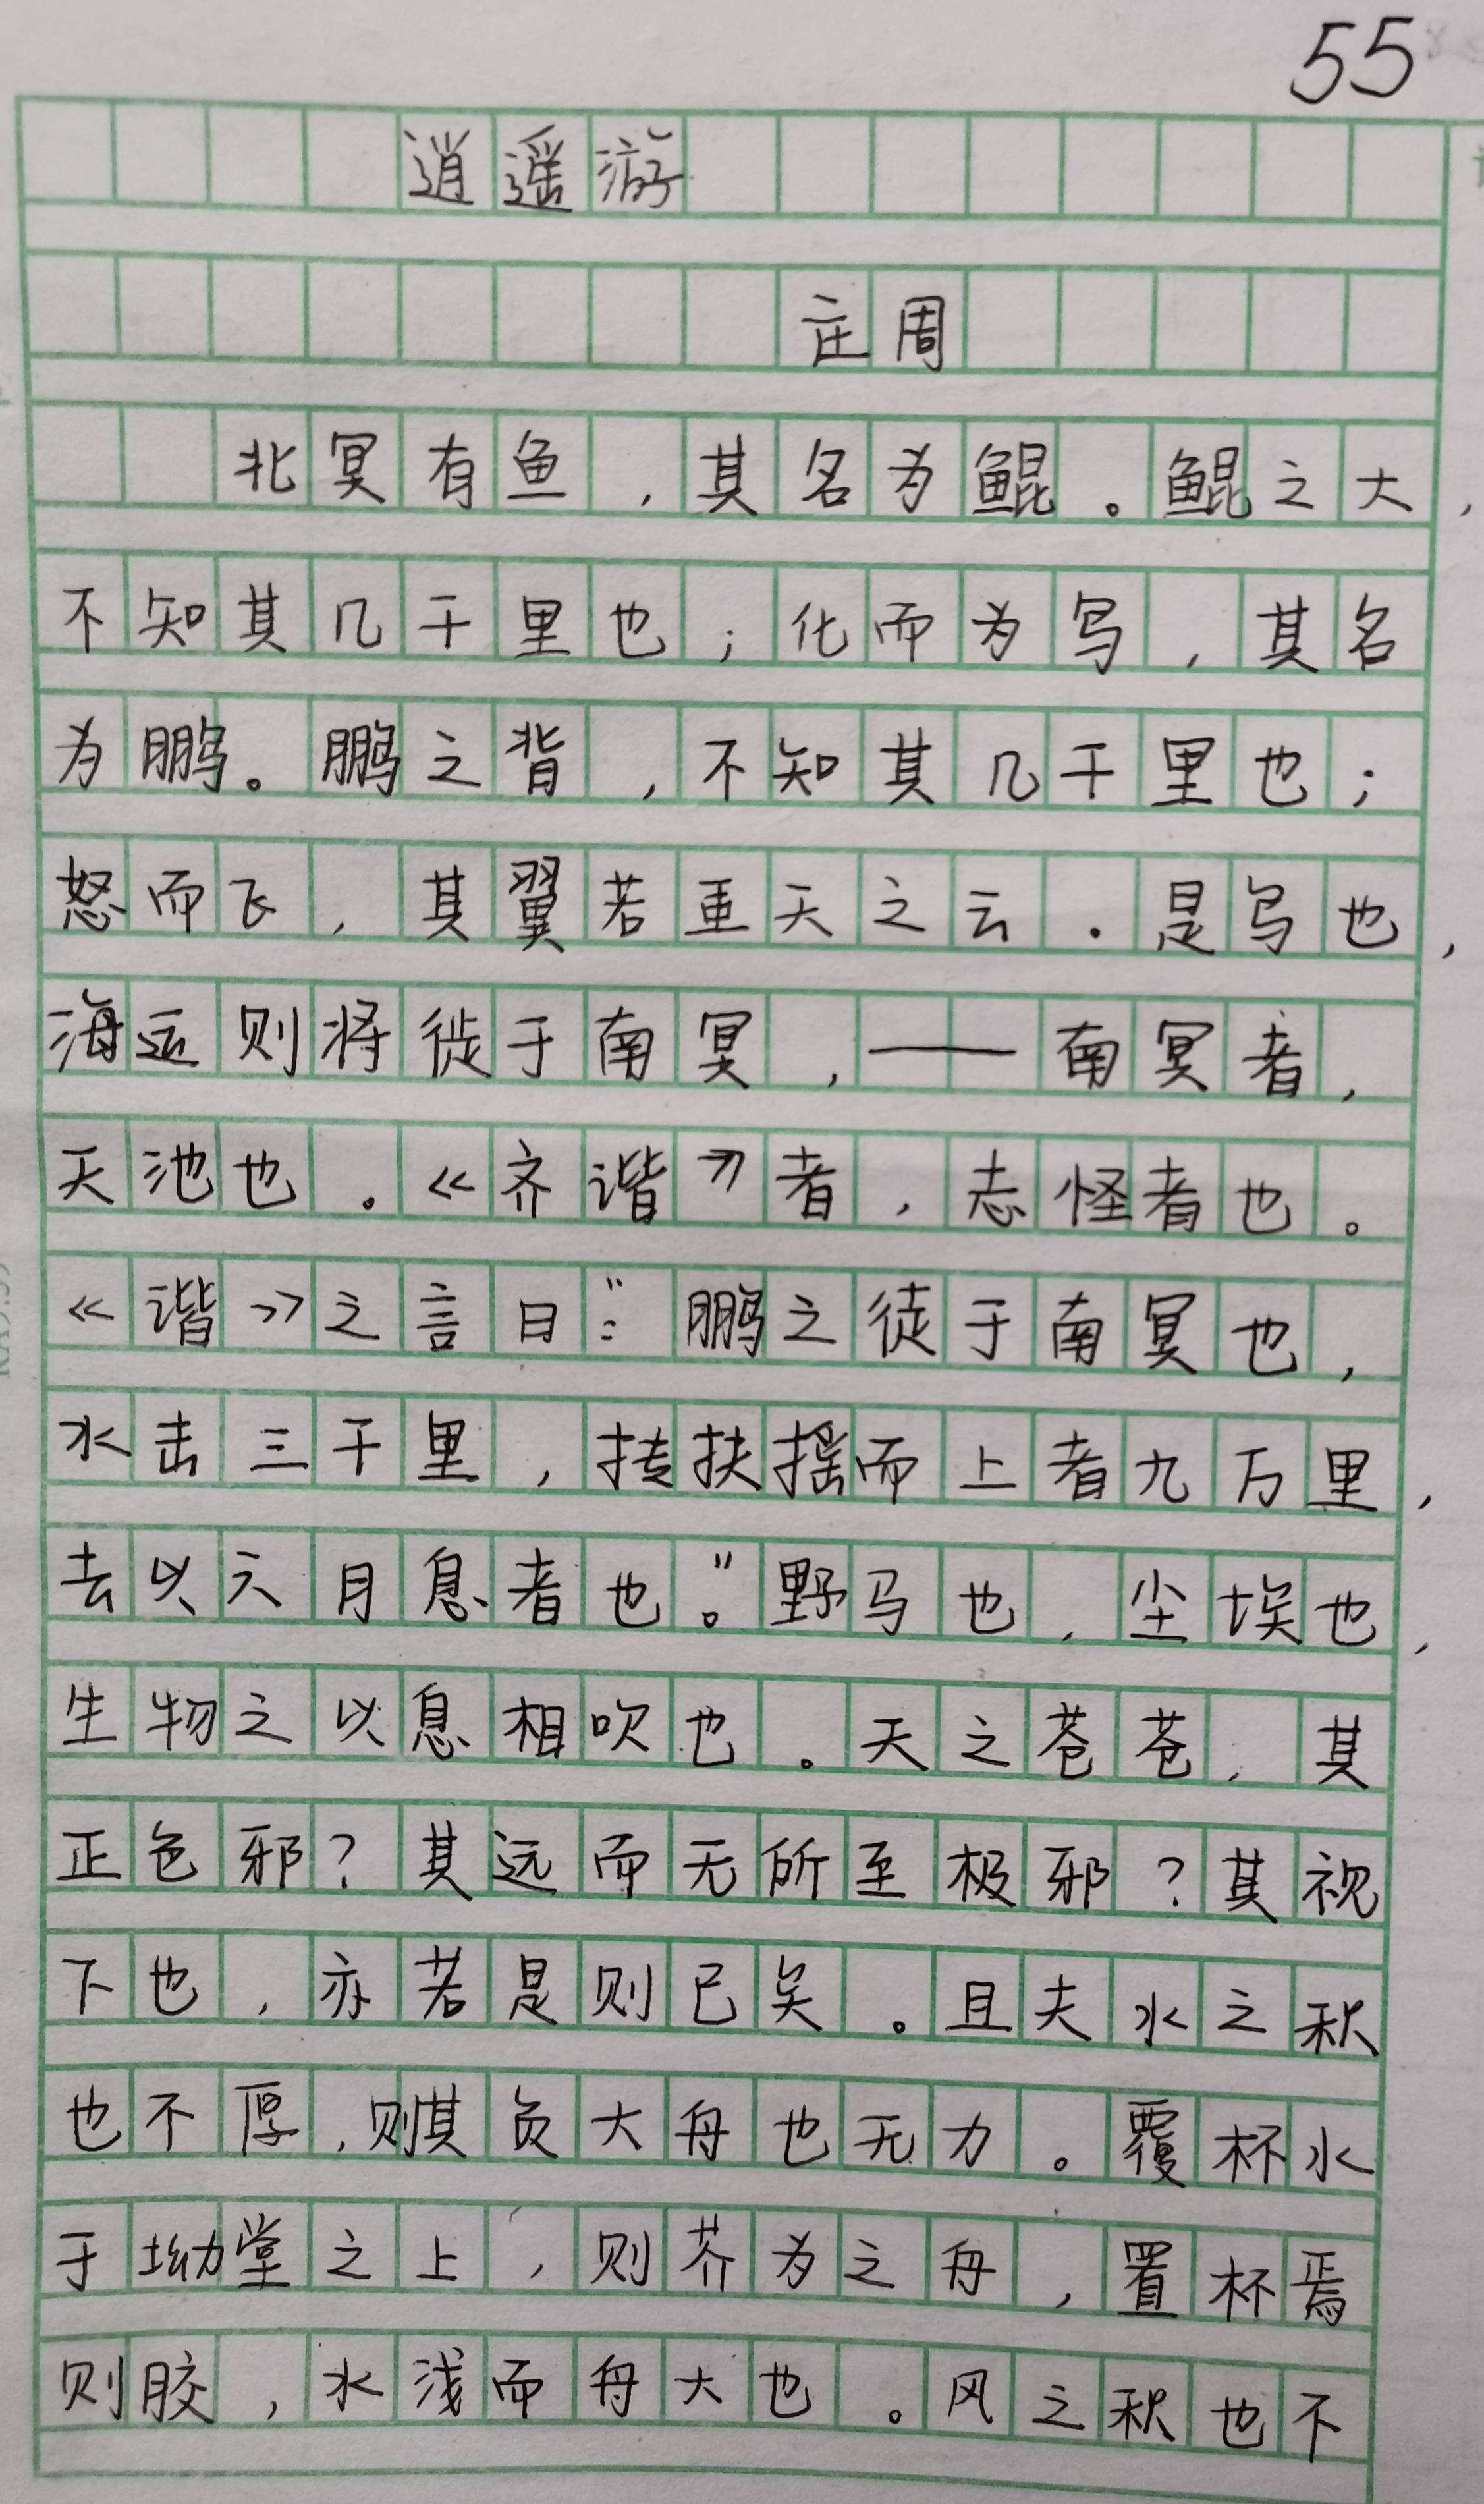 55
逍遥游
庄周
北冥有鱼，其名为鲲。鲲之大，
不知其几千里也；化而为鸟，其名
为鹏。鹏之背，不知其几千里也；
怒而飞，其翼若垂天之云．是鸟也，
海运则将徙于南冥，——南冥者，
天池也。《齐谐》者，志怪者也。
《谐》之言曰：“鹏之徒于南冥也，
水击三千里，抟扶摇而上者九万里，
去以六月息者也。”野马也，尘埃也，
生物之以息相吹也。天之苍苍，其
正色邪？其远而无所至极邪？其视
下也，亦若是则已矣。且夫水之积
也不厚，则其负大舟也无力。覆杯水
于坳堂之上，则芥为之舟，置杯焉
则胶，水浅而舟大也。风之积也不